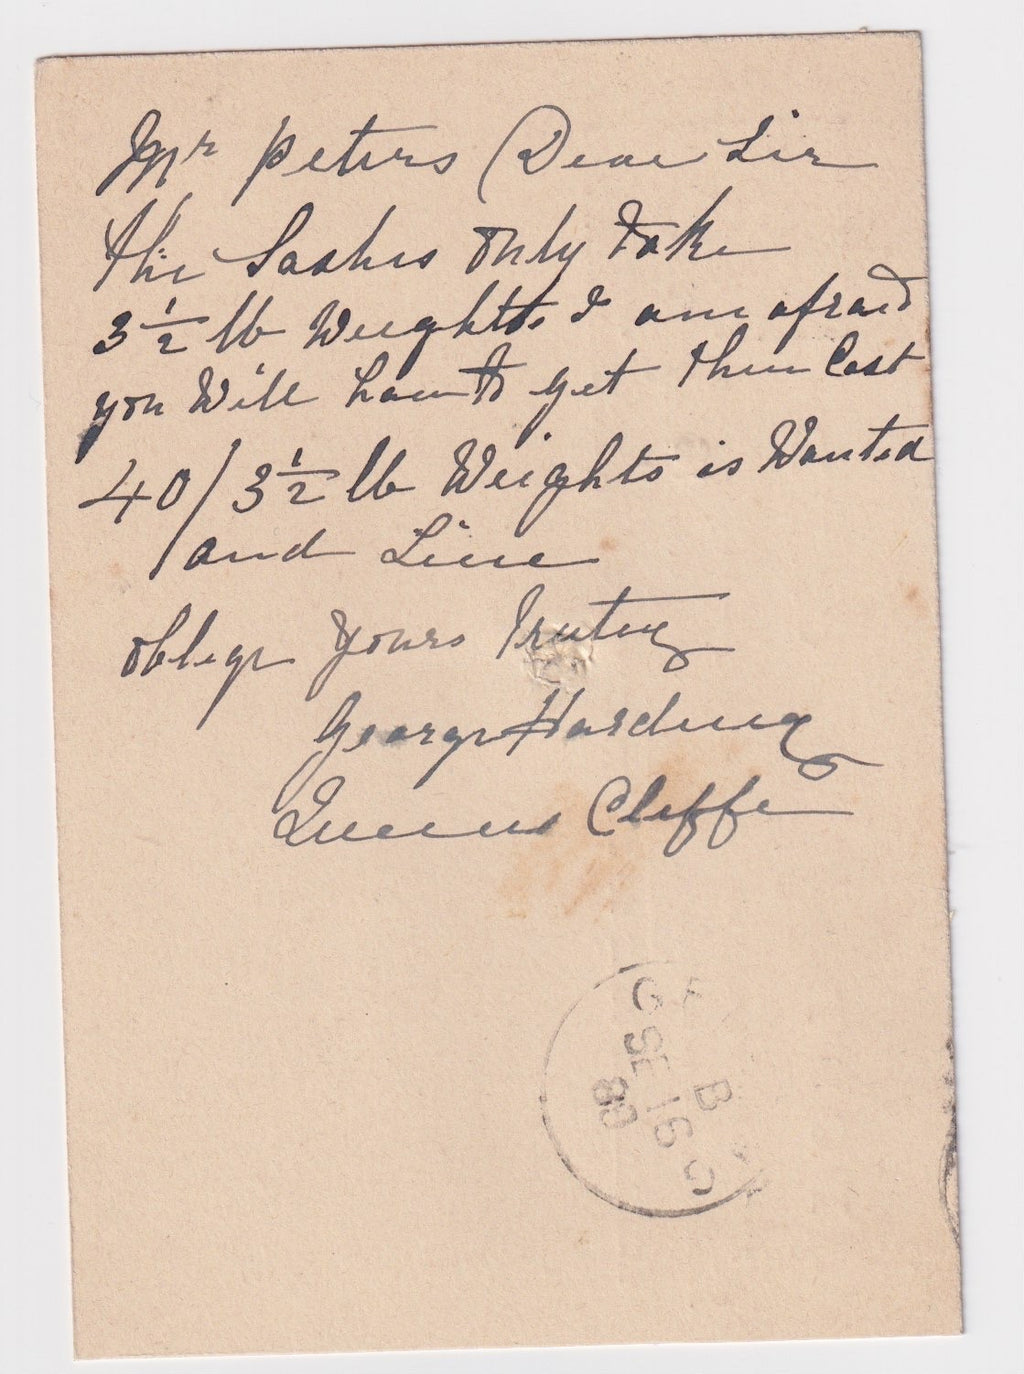 Mr Peters Dear Sir
the Sashes only take
3 1/2 lb Weights I am afraid
you Will have to get them Cast
40/3 1/2 lb Weights is Wanted
and Line
oblige Yours Truly
George Harding
Queens Cliffe
G
B
SE 16
89
C